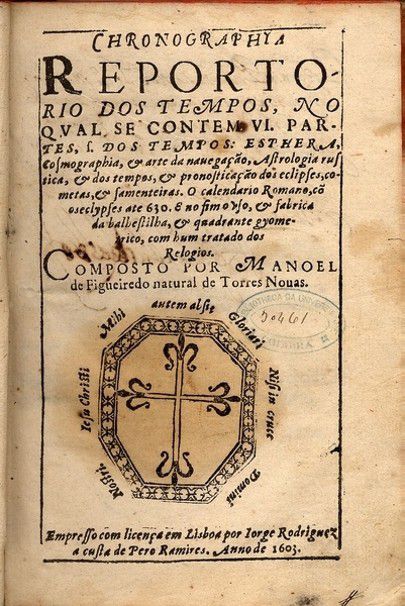 CHRONOGRAPHIA
REPORTO-
RIO DOS TEMPOS, NO
QVAL SE CONTEM VI. PAR-
TES, S. DOS TEMPOS: ESPHERA,
Cosmographia, & arte da nauegação, Astrologia rus
tica, & dos tempos, & pronosticação dos eclipses, co-
metas, & sementeiras. O calendario Romano, cõ
os eclypses ate 630. E no fim o vso, & fabrica
da balhestilha, & quadrante gyome-
trico, com hum tratado dos
Relogios.
COMPOSTO POR MANOEL
de Figueiredo natural de Torres Nouas.
BIBLIOTHECA DA UNIVERS
50461
Mihi
autem absit
Gloriari
Nisi in cruce
Domini
Nostri
Iesu Christi
Empresso com licença em Lisboa por Iorge Rodriguez
a custa de Pero Ramires. Anno de 1603.